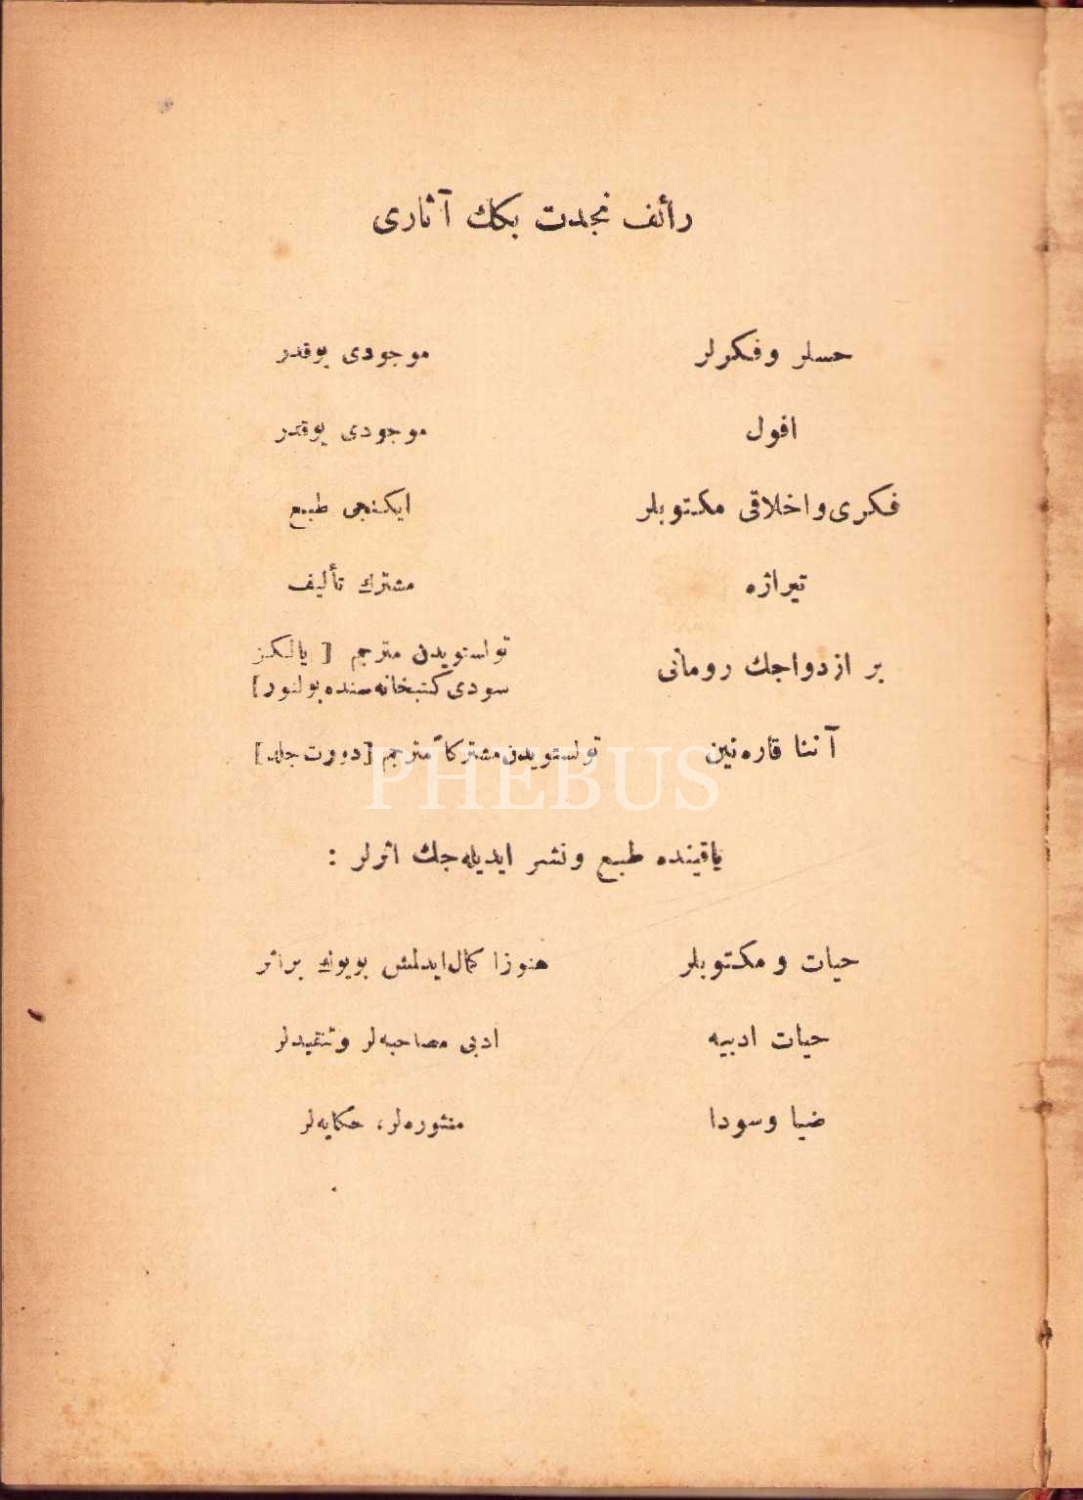 رأئف نجدت بكك آثاری
حسلر وفكرلر موجودی یوقدر
افول موجودی یوقدر
فكری واخلاقی مكتوبلر ایكنجی طبع
تیراژه مشترك تألیف
بر ازدواجك رومانی تولستویدن مترجم [ یالكز
سودی كتبخانه‌سنده بولنور]
آننا قاره‌نین تولستویدن مشتركاً مترجم [دورت جلد]
PHEBUS
یاقینده طبع ونشر ایدیله‌جك اثرلر :
حیات و مكتوبلر هنوز اكمال ایدلمش بویوك براثر
حیات ادبیه ادبی مصاحبه‌لر وتنقیدلر
ضیا وسودا منثوره‌لر، حكایه‌لر